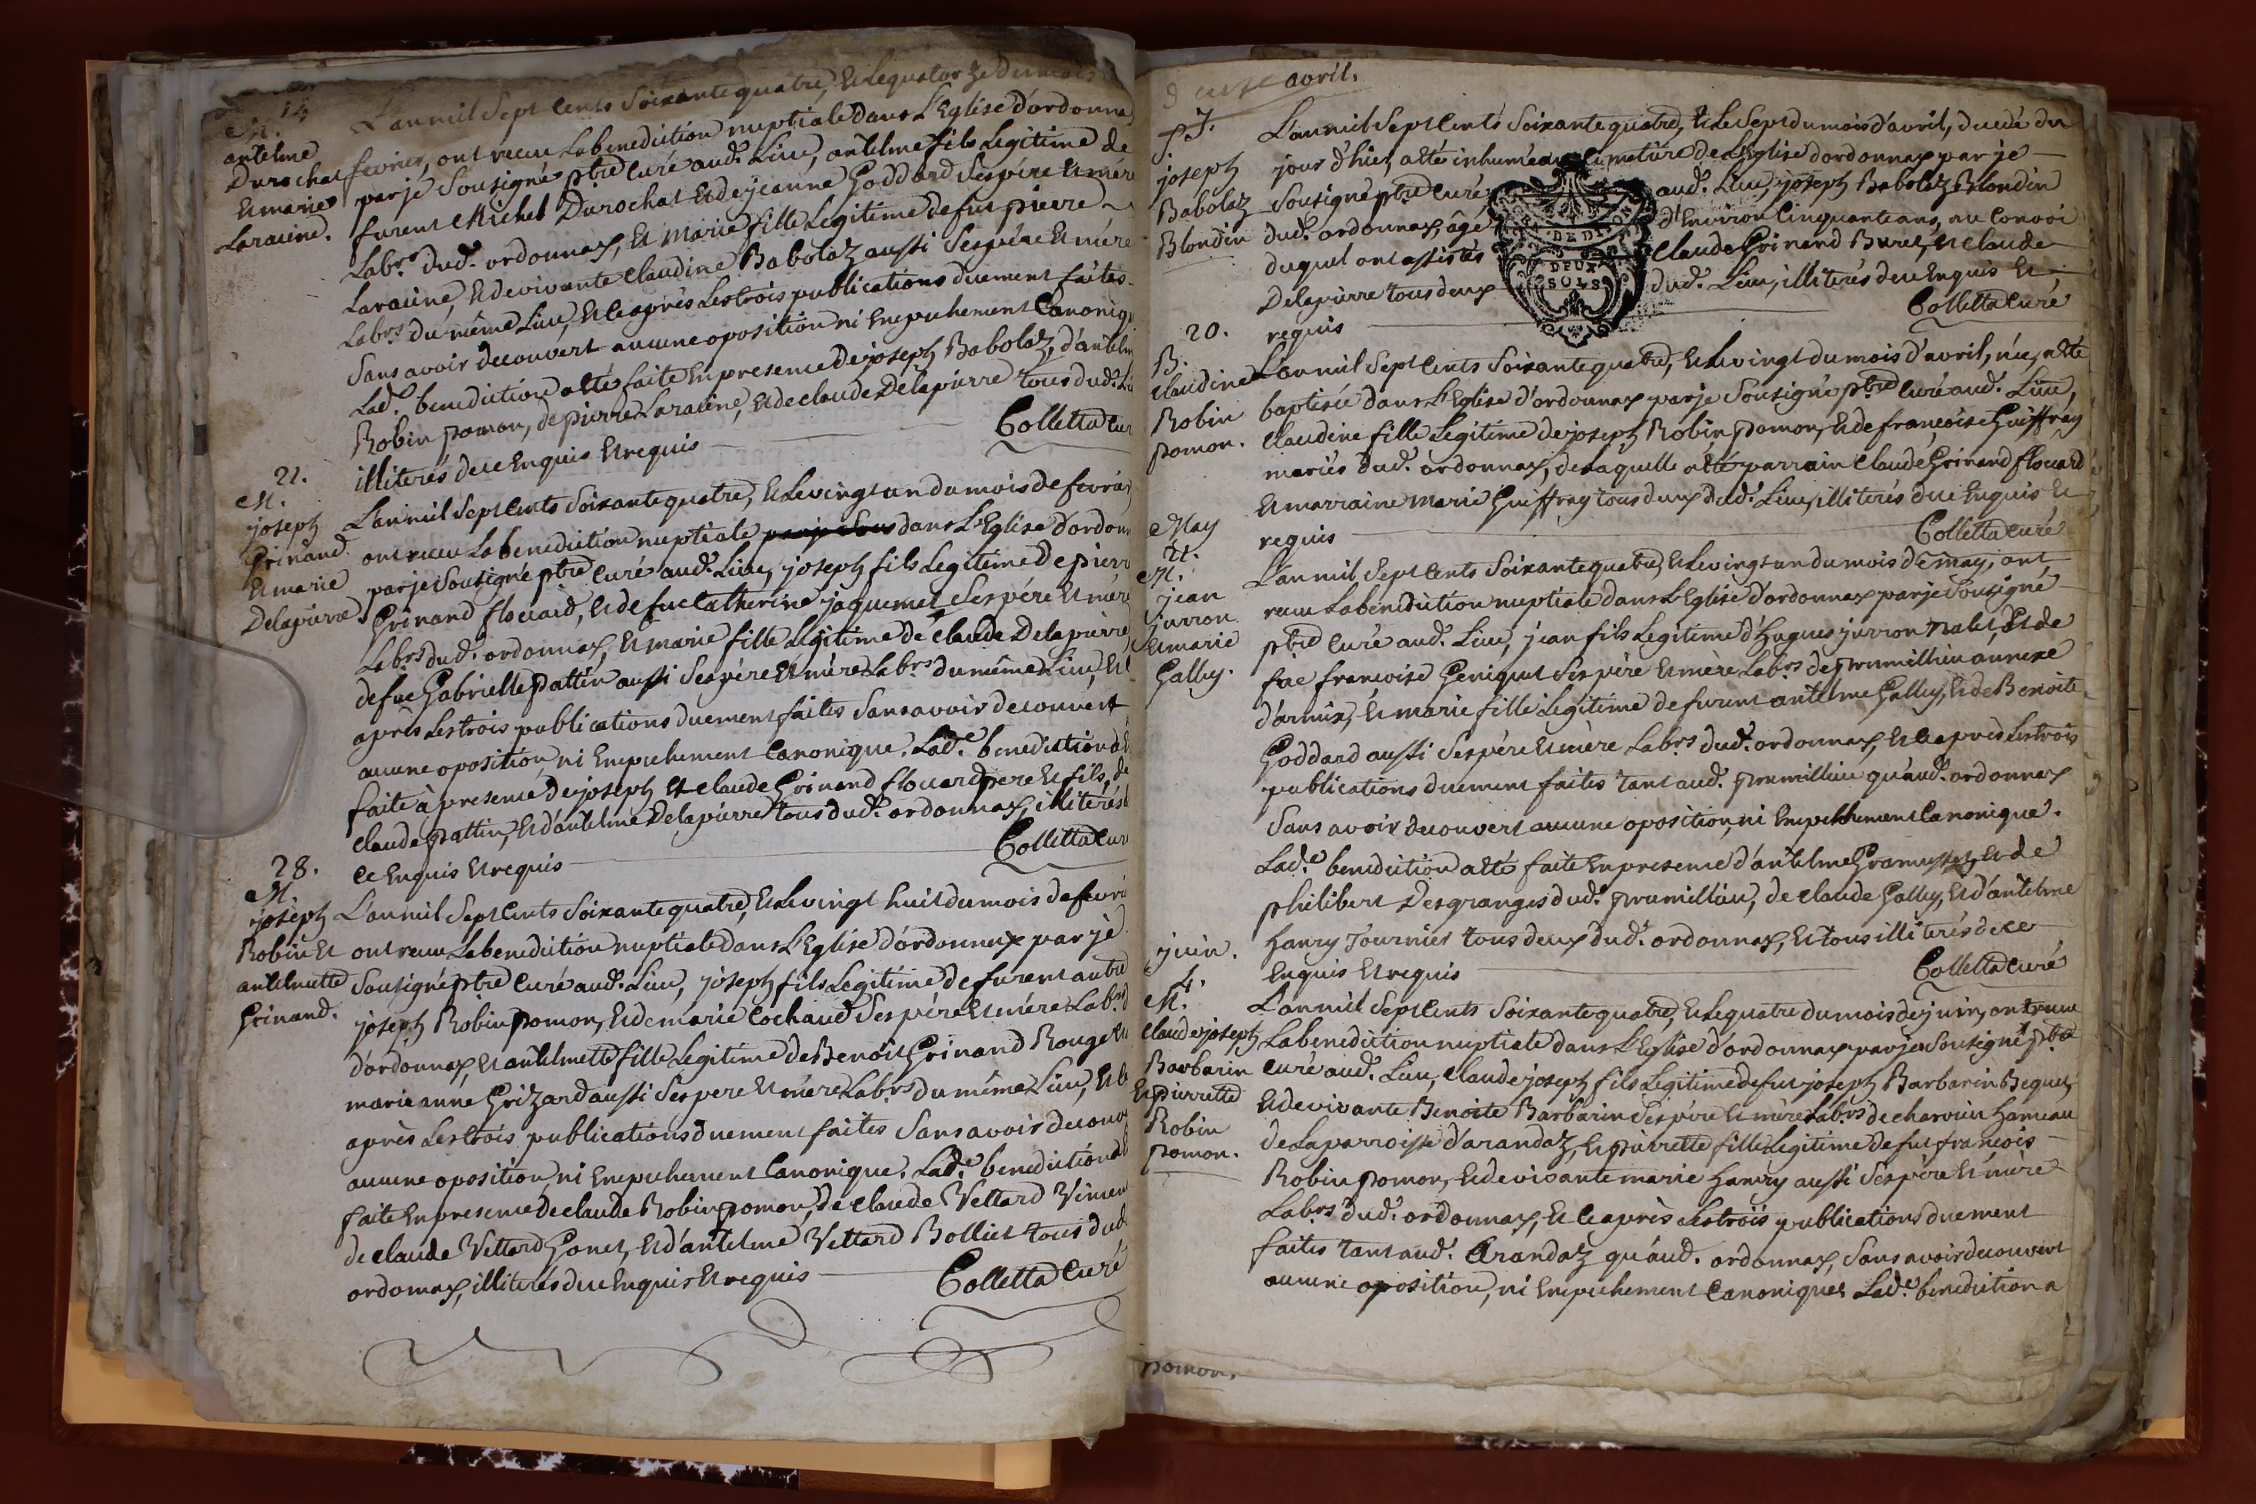 14
M.
antelme
Durochat
Et marie
Laraine.
L'an mil Sept Cents Soixante quatre, Et Le quatorze du mois
fevrier, ont receu La benediction nuptiale dans L'Eglise d'ordonna
par je Sousigné ptre Curé aud.t Lieu, antelme fils Legitime de
furent Michel Durochat Et de jeanne Goddard Ses pére Et mére
Lab.rs dud.t ordonnax, Et marie fille Legitime de fut pierre
Laraine, Et de vivante Claudine Babolaz aussi Ses pére Et mére
Lab.rs du même Lieu, Et ce après Les trois publications duement faites
Sans avoir decouvert aucune oposition ni Empechement Canoniqu
Lad.e benediction a Eté faite En presence de joseph Babolaz, d'antelm
Robin pomon, de pierre Laraine, Et de claude Delapierre tous dud.t Li
illiterés de ce Enquis Et requis
Colletta Cur
21.
M.
joseph
Grinand
Et marie
Delapierre
L'an mil Sept Cents Soixante quatre, Et Le vingt un du mois de fevrier
ont receu La benediction nuptiale par je Sous dans L'Eglise d'ordonn
par je Sousigné ptre Curé aud.t Lieu, joseph fils Legitime de pierr
Grinand flouard, Et de fue Catherine jaquemet Ses pére Et mére
Lab.rs dud.t ordonnax, Et marie fille Légitime de Claude Delapierre,
de fue Gabrielle pattin aussi Ses pére Et mére Lab.rs du même Lieu, Et
après Les trois publications duement faites Sans avoir decouvert
aucune oposition, ni Empechement Canonique. Lad.e benediction a
faite à presence de joseph Et claude Grinand flouard pere Et fils, de
claude pattin, Et d'antelme Delapierre tous dud.t ordonnax, illiterés
ce Enquis Et requis
Colletta Cur
28.
M.
joseph
Robin Et
antelmette
Grinand.
L'an mil Sept Cents Soixante quatre, Et Le vingt huit du mois de fevri
ont receu La benediction nuptiale dans L'Eglise d'ordonnax par je
Sousigné ptre Curé aud.t Lieu, joseph fils Legitime de furent autre
joseph Robin pomon, Et de marie Cochaud Ses pére Et mére Lab.rs
d'ordonnax, Et antelmette fille Legitime de Benoit Grinand Rouge Et
marie anne Grizard aussi Ses pere Et mére Lab.rs du même Lieu, Et ce
après Les trois publications duement faites Sans avoir decouv
aucune oposition, ni Empechement Canonique. Lad.e benediction a
faite En presence de claude Robin pomon, de claude Vettard Vincen
de claude Vettard Gonet, Et d'antelme Vettard Bolliet tous dud
ordonnax, illiterés de ce Enquis Et requis
Colletta Curé
avril.
7.
joseph
Babolaz
Blondin
L'an mil Sept Cents Soixante quatre, Et Le Sept du mois d'avril, decedé du
jour d'hier, a Eté inhumé au Cimetiére de L'Eglise d'ordonnax par je
Sousigné ptre Curé aud.t Lieu, joseph Babolaz Blondin
dud.t ordonnax, âgé d'Environ Cinquante ans, au Convoi
duquel ont assistés Claude Grinand Buret, Et Claude
Delapierre tous deux dud.t Lieu, illiterés de ce Enquis Et
requis
Colletta Curé
DE DIJON
DEUX
SOLS
20.
B.
Claudine
Robin
pomon.
L'an mil Sept Cents Soixante quatre, Et Le vingt du mois d'avril, née, a Eté
baptisée dans L'Eglise d'ordonnax par je Sousigné ptre Curé aud.t Lieu,
Claudine fille Legitime de joseph Robin pomon, Et de françoise Guiffray
mariés dud.t ordonnax, de Laquelle a Eté parrain Claude Grinand flouard
Et marraine marie Guiffray tous deux dud.t Lieu, illiterés de ce Enquis Et
requis
Colletta Curé
May
21.
M.
jean
juvron
Et marie
Galley.
L'an mil Sept Cents Soixante quatre, Et Le vingt un du mois de may, ont
receu La benediction nuptiale dans L'Eglise d'ordonnax par je Sousigné
ptre Curé aud.t Lieu, jean fils Legitime d'Hugues juvron nalet, Et de
fue françoise Geniquet Ses pére Et mére Lab.rs de prumillieu annexe
d'armix, Et marie fille Legitime de furent antelme Galley, Et de Benoite
Goddard aussi Ses pére Et mére Lab.rs dud.t ordonnax, Et ce après Les trois
publications duement faites tant aud.t prumillieu qu'aud.t ordonnax
Sans avoir decouvert aucune oposition, ni Empechement Canonique.
Lad.e benediction a Eté faite En presence d'antelme Gramusset, Et de
philibert Desgranges dud.t prumillieu, de Claude Galley, Et d'antelme
Hanry Tournier tous deux dud.t ordonnax, Et tous illiterés de ce
Enquis Et requis
Colletta Curé
juin.
4.
M.
Claude joseph
Barbarin
Et pierrette
Robin
pomon.
L'an mil Sept Cents Soixante quatre, Et Le quatre du mois de juin, ont receu
La benediction nuptiale dans L'Eglise d'ordonnax par je Sousigné ptre
Curé aud.t Lieu, Claude joseph fils Legitime de fut joseph Barbarin Bequet,
Et de vivante Benoite Barbarin Ses pére Et mére Lab.rs de charvieu Hameau
de La parroisse d'arandaz, Et pierrette fille Legitime de fut françois
Robin pomon, Et de vivante marie Hanry aussi Ses pére Et mére
Lab.rs dud.t ordonnax, Et ce après Les trois publications duement
faites tant aud.t Arandaz qu'aud.t ordonnax, Sans avoir decouvert
aucune oposition, ni Empechement Canonique. Lad.e benediction a
pomon.